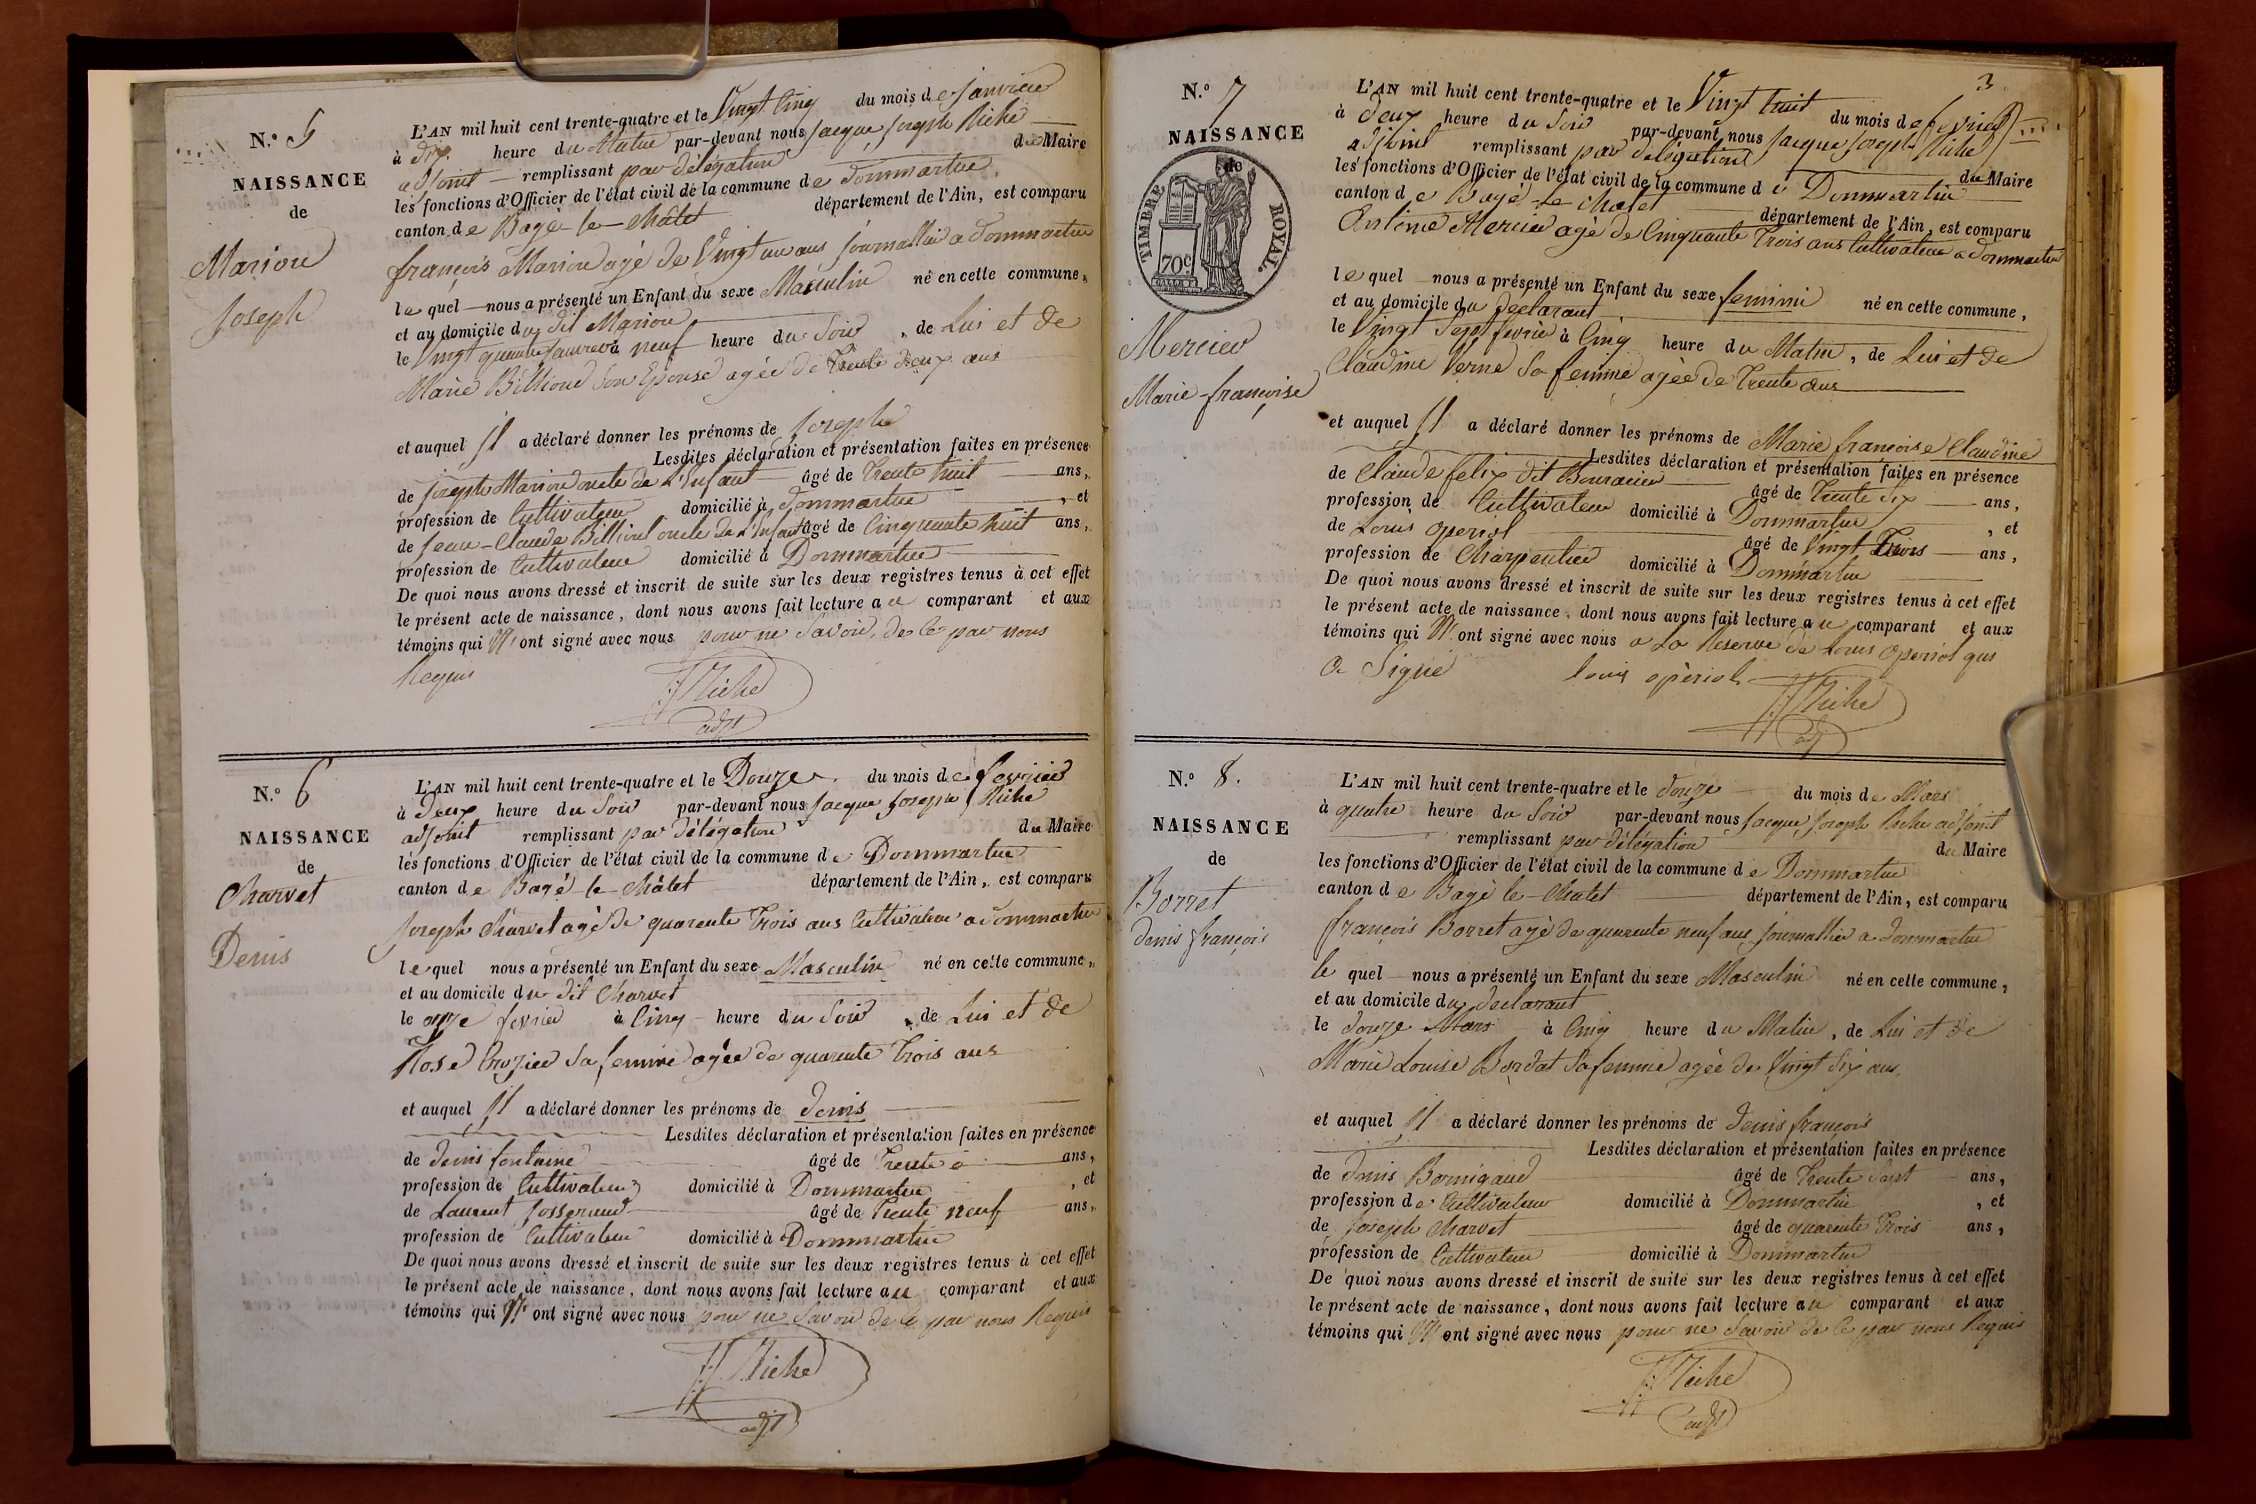 N.º 5
NAISSANCE
de
Marion
Joseph
L'AN mil huit cent trente-quatre et le Vingt Cinq du mois de Janvier
à dix heure du Matin par-devant nous Jacque Joseph Niche
adjoint remplissant par délégation du Maire
les fonctions d'Officier de l'état civil de la commune de Dommartin
canton de Bagé le Châtel département de l'Ain, est comparu
françois Marion agé de Vingt un ans journallier a Dommartin
le quel nous a présenté un Enfant du sexe Masculin né en cette commune,
et au domicile du dit Marion
le Vingt quatre Janvier à neuf heure du Soir, de Lui et de
Marie Billioud Son Epouse agée de Trente deux ans
et auquel Il a déclaré donner les prénoms de Joseph
Lesdites déclaration et présentation faites en présence
de Joseph Marion oncle de l'Enfant âgé de Trente huit ans,
profession de Cultivateur domicilié à Dommartin, et
de Jean-Claude Billioud oncle de l'Enfant âgé de Cinquante huit ans,
profession de Cultivateur domicilié à Dommartin
De quoi nous avons dressé et inscrit de suite sur les deux registres tenus à cet effet
le présent acte de naissance, dont nous avons fait lecture au comparant et aux
témoins qui N'ont signé avec nous pour ne Savoir de ce par nous
Requis
JJ Niche
adjt
N.º 6
NAISSANCE
de
Charvet
Denis
L'AN mil huit cent trente-quatre et le Douze du mois de fevrier
à Deux heure du Soir par-devant nous Jacque Joseph Niche
adjoint remplissant par délégation du Maire
les fonctions d'Officier de l'état civil de la commune de Dommartin
canton de Bagé le Châtel département de l'Ain, est comparu
Joseph Charvet agé de quarante Trois ans Cultivateur a Dommartin
le quel nous a présenté un Enfant du sexe Masculin né en cette commune,
et au domicile du dit Charvet
le onze fevrier à Cinq heure du Soir, de Lui et de
Rose Crozier Sa femme agée de quarante Trois ans
et auquel Il a déclaré donner les prénoms de Denis
Lesdites déclaration et présentation faites en présence
de Denis fontaine âgé de Trente ans,
profession de Cultivateur domicilié à Dommartin, et
de Laurent Josserand âgé de Trente neuf ans,
profession de Cultivateur domicilié à Dommartin
De quoi nous avons dressé et inscrit de suite sur les deux registres tenus à cet effet
le présent acte de naissance, dont nous avons fait lecture au comparant et aux
témoins qui N'ont signé avec nous pour ne Savoir de ce par nous Requis
JJ Niche
adjt
3
N.º 7
NAISSANCE
de
TIMBRE ROYAL.
70c
Mercier
Marie-françoise
L'AN mil huit cent trente-quatre et le Vingt huit du mois de fevrier
à Deux heure du Soir par-devant nous Jacque Joseph Niche
adjoint remplissant par délégation du Maire
les fonctions d'Officier de l'état civil de la commune de Dommartin
canton de Bagé le Chatel département de l'Ain, est comparu
Antoine Mercier agé de Cinquante Trois ans Cultivateur a Dommartin
le quel nous a présenté un Enfant du sexe feminin né en cette commune,
et au domicile du declarant
le Vingt Sept fevrier à Cinq heure du Matin, de Lui et de
Claudine Verne Sa femme agée de Trente ans
et auquel Il a déclaré donner les prénoms de Marie françoise Claudine
Lesdites déclaration et présentation faites en présence
de Claude felix dit Bouracier âgé de Trente Six ans,
profession de Cultivateur domicilié à Dommartin, et
de Louis Operiol âgé de Vingt Trois ans,
profession de Charpentier domicilié à Dommartin
De quoi nous avons dressé et inscrit de suite sur les deux registres tenus à cet effet
le présent acte de naissance, dont nous avons fait lecture au comparant et aux
témoins qui N'ont signé avec nous a La Reserve de Louis Operiol qui
a Signé
louis opériol
JJ Niche
adjt
N.º 8.
NAISSANCE
de
Borret
Denis françois
L'AN mil huit cent trente-quatre et le douze du mois de Mars
à quatre heure du Soir par-devant nous Jacque Joseph Niche adjoint
remplissant par délégation du Maire
les fonctions d'Officier de l'état civil de la commune de Dommartin
canton de Bagé le Chatel département de l'Ain, est comparu
françois Borret agé de quarante neuf ans journallier a Dommartin
le quel nous a présenté un Enfant du sexe Masculin né en cette commune,
et au domicile du declarant
le douze Mars à Cinq heure du Matin, de Lui et de
Marie Louise Bordat Sa femme agée de Vingt Six ans,
et auquel Il a déclaré donner les prénoms de Denis françois
Lesdites déclaration et présentation faites en présence
de Denis Bornigaud âgé de Trente Sept ans,
profession de Cultivateur domicilié à Dommartin, et
de Joseph Charvet âgé de quarante Trois ans,
profession de Cultivateur domicilié à Dommartin
De quoi nous avons dressé et inscrit de suite sur les deux registres tenus à cet effet
le présent acte de naissance, dont nous avons fait lecture au comparant et aux
témoins qui N'ont signé avec nous pour ne Savoir de ce par nous Requis
JJ Niche
adjt